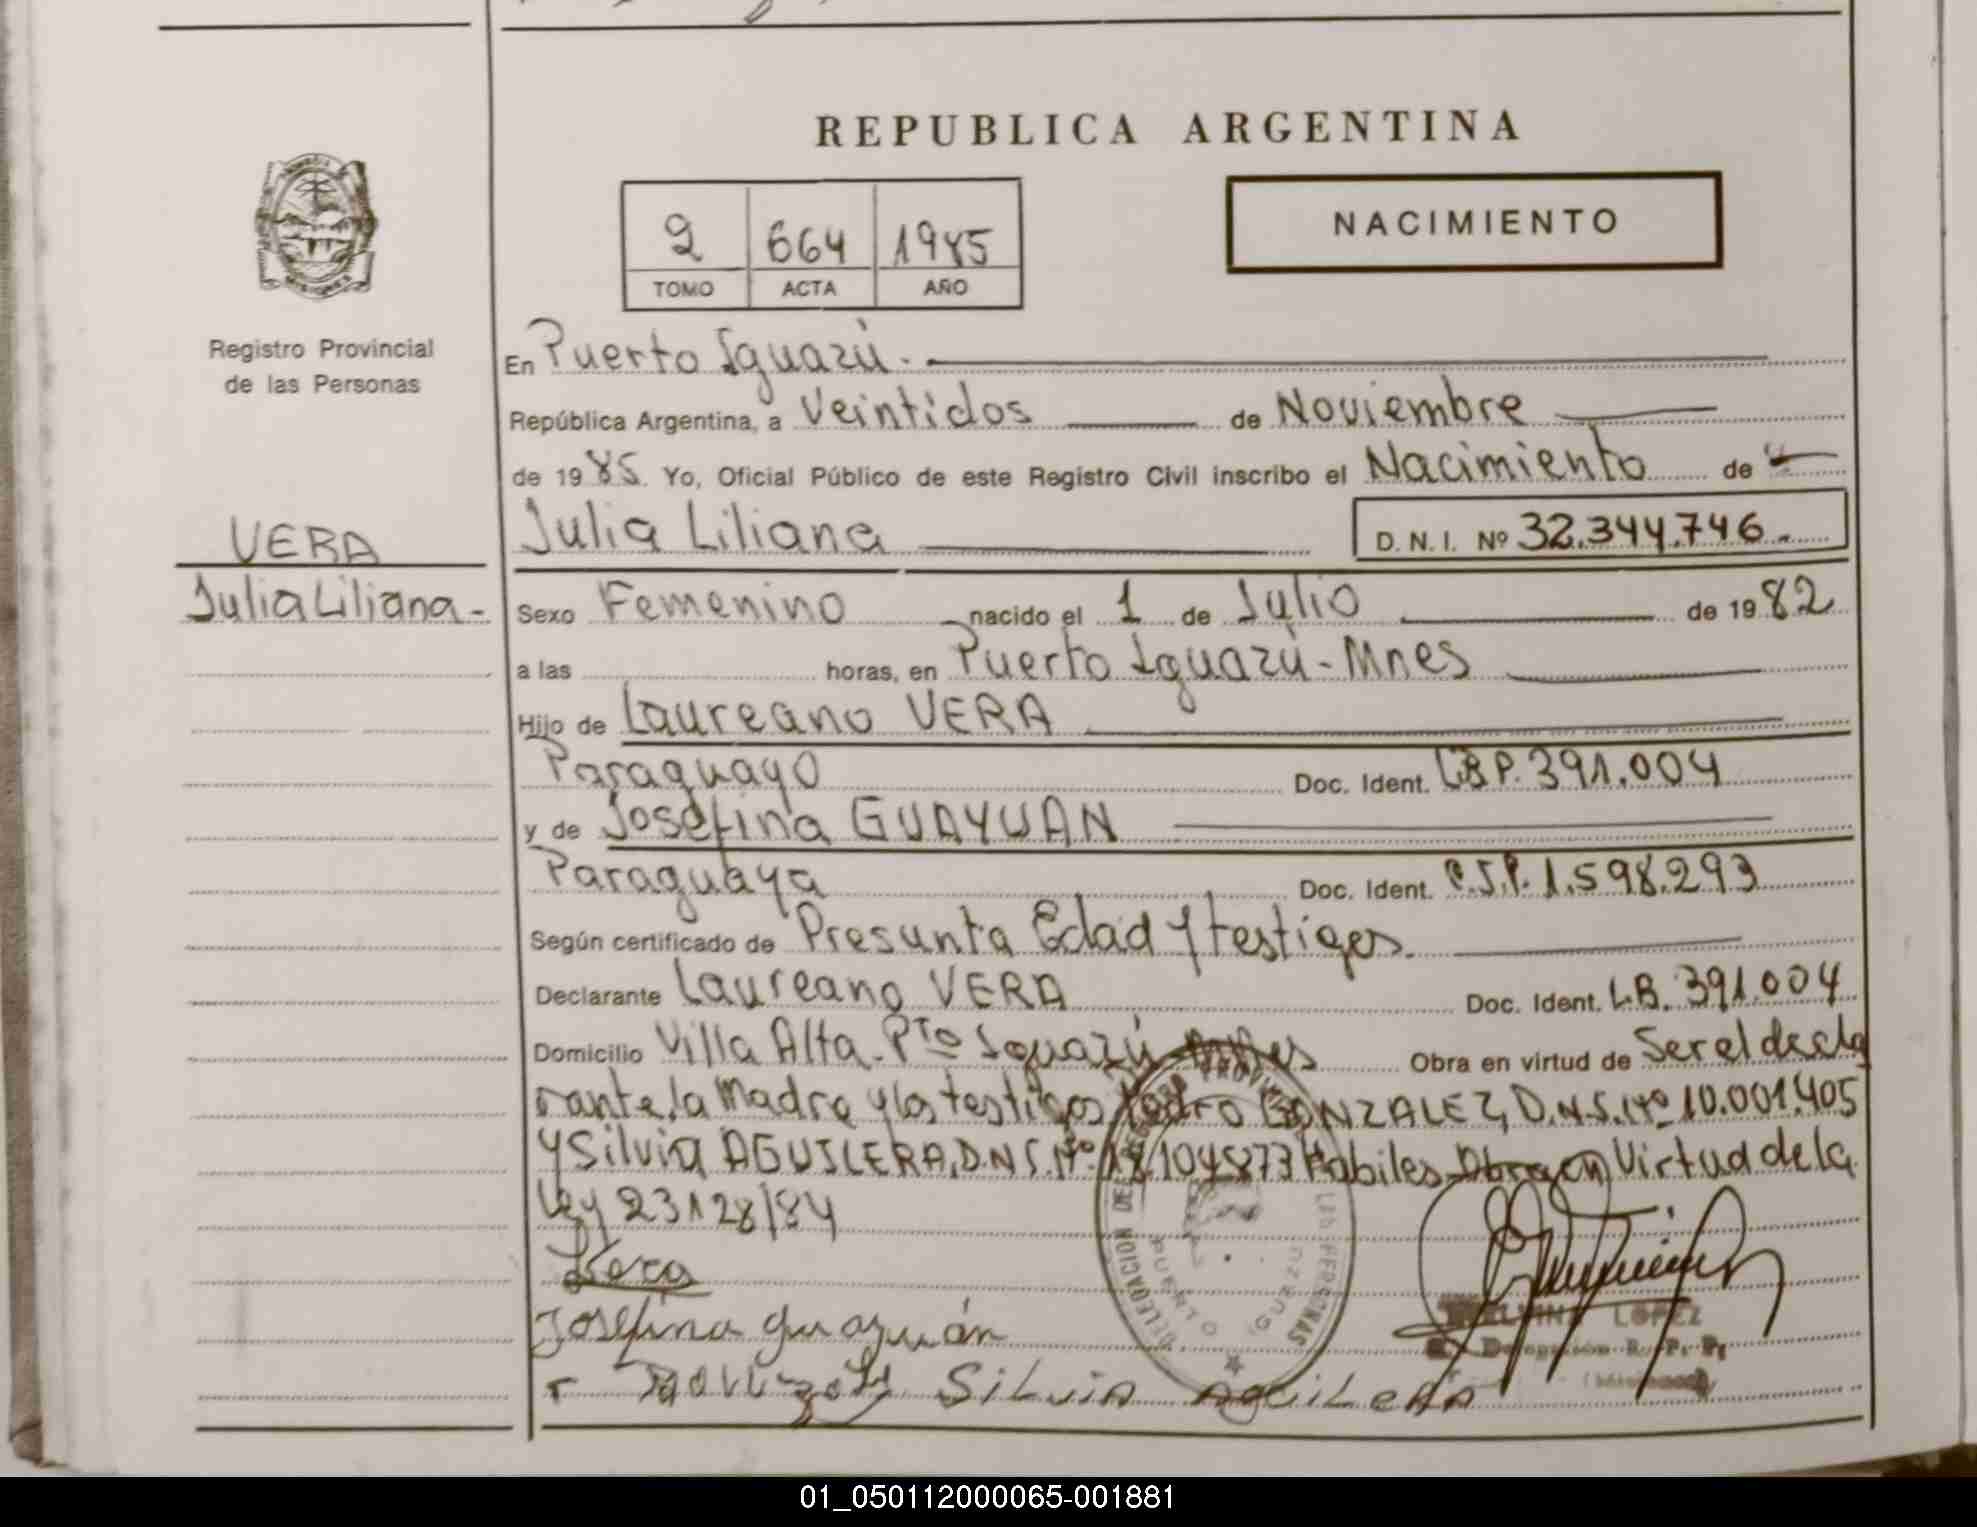 REPUBLICA ARGENTINA
2 664 1985
TOMO ACTA AÑO
NACIMIENTO
Registro Provincial
de las Personas
En Puerto Iguazú.
República Argentina, a Veintidos de Noviembre
de 1985. Yo, Oficial Público de este Registro Civil inscribo el Nacimiento de
VERA
Julia Liliana -
Julia Liliana
D. N. I. Nº 32.344.746.
Sexo Femenino nacido el 1 de Julio de 1982
a las horas, en Puerto Iguazú - Mnes
Hijo de Laureano VERA
Paraguayo Doc. Ident. LBP. 391.004
y de Josefina GUAYUAN
Paraguaya Doc. Ident. C.I.P. 1.598.293
Según certificado de Presunta Edad y testigos.
Declarante Laureano VERA Doc. Ident. L.B. 391.004
Domicilio Villa Alta - Pto Iguazú Mnes Obra en virtud de Ser el decla
rante, la Madre y los testigos Pedro GONZALEZ, D.N.I. Nº 10.001.405
y Silvia AGUILERA, D.N.I. Nº 18.104873 Habiles Obra en Virtud de la
Ley 23128/84
Vera
Josefina guayuán
SiLviA AguiLeRA
DELEGACION DEL REGISTRO PROVINCIAL DE LAS PERSONAS
PUERTO IGUAZU
LOPEZ
Delegación R. P. P.
01_050112000065-001881